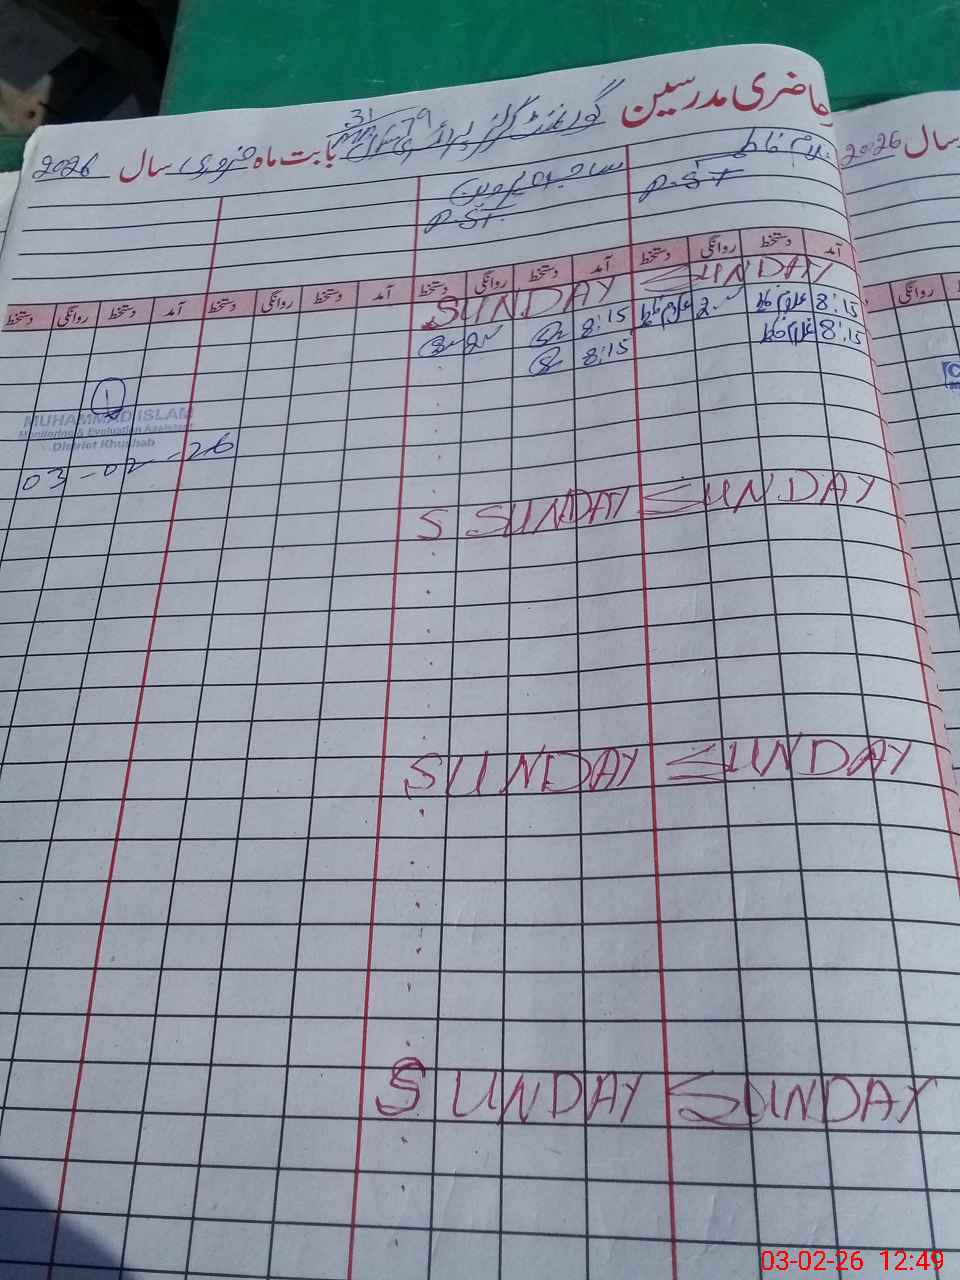 حاضری مدرسین گورنمنٹ گرلز پرائمری سکول 31 79 بابت ماہ فروری سال 2026
سال 2026
غلام فاطمہ
P.ST P.ST.
آمد دستخط روانگی دستخط آمد دستخط روانگی دستخط آمد دستخط روانگی دستخط آمد دستخط روانگی دستخط
روانگی
SUNDAY SUNDAY
8:15 غلام فاطمہ 2 غلام فاطمہ 8:15 2
8:15 غلام فاطمہ 8:15
1
MUHAMMAD ISLAM
Monitoring & Evaluation Assistant
District Khushab
03-02-26
SUNDAY S SUNDAY
SUNDAY SUNDAY
SUNDAY SUNDAY
03-02-26 12:49